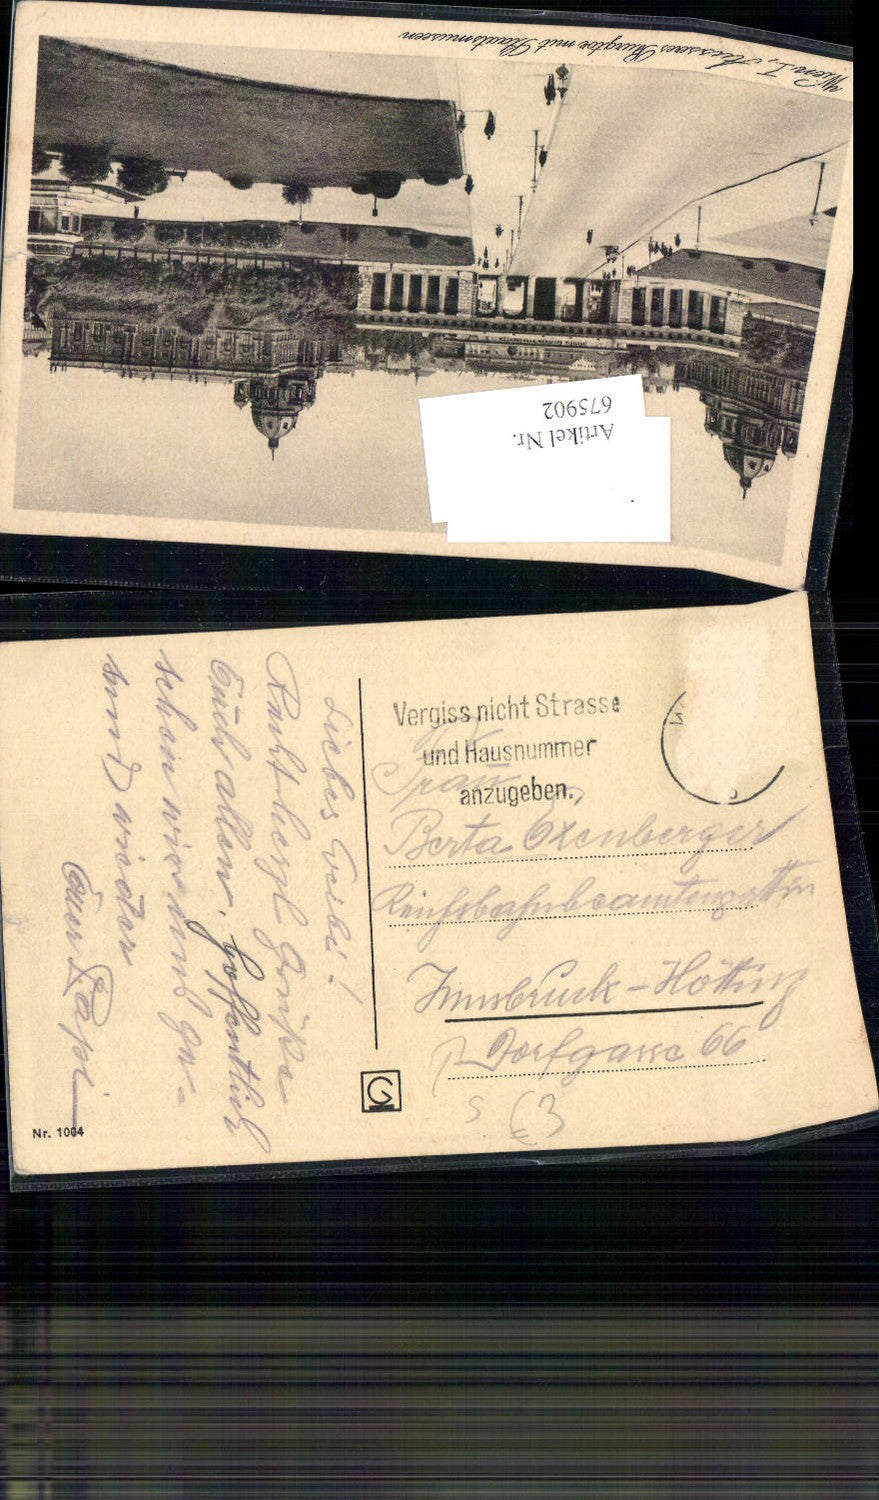 Wien I., Äusseres Burgtor mit Staatsmuseen
Artikel Nr.
675902
Liebes Gerbi!
Recht herzl. Grüße
Euch allen. Hoffentlich
sehen wir uns ge-
sund wieder
Euer Papi
Nr. 1004
Vergiss nicht Strasse
und Hausnummer
anzugeben.
Frau
Berta Exenberger
Reichsbahnbeamtengattin
Innsbruck - Hötting
Dorfgasse 66
G
S €3